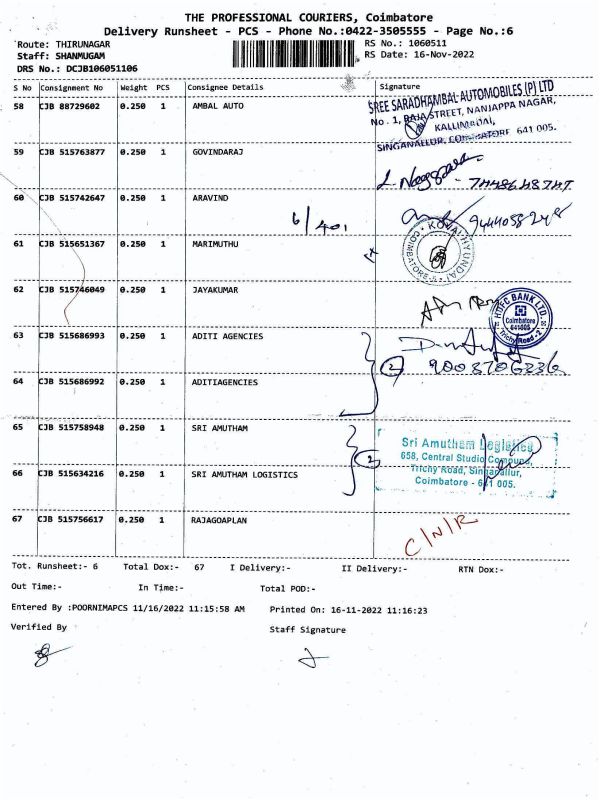 THE PROFESSIONAL COURIERS, Coimbatore
Delivery Runsheet - PCS - Phone No.:0422-3505555 - Page No.:6
Route: THIRUNAGAR RS No.: 1060511
Staff: SHANMUGAM RS Date: 16-Nov-2022
DRS No.: DCJB106051106
S No Consignment No Weight PCS Consignee Details Signature
58 CJB 88729602 0.250 1 AMBAL AUTO
SREE SARADHAMBAL AUTOMOBILES (P) LTD
No. 1, RAJA STREET, NANJAPPA NAGAR,
KALLIMADAI,
SINGANALLUR, COIMBATORE 641 005.
59 CJB 515763877 0.250 1 GOVINDARAJ
60 CJB 515742647 0.250 1 ARAVIND
6/401
61 CJB 515651367 0.250 1 MARIMUTHU
KOVAI HYUNDAI
COIMBATORE
62 CJB 515746049 0.250 1 JAYAKUMAR
HDFC BANK LTD.
Coimbatore
641005
Trichy Road - 2
63 CJB 515686993 0.250 1 ADITI AGENCIES
2
9003706236
64 CJB 515686992 0.250 1 ADITIAGENCIES
65 CJB 515758948 0.250 1 SRI AMUTHAM
2
Sri Amutham Logistics
658, Central Studio Compound,
Trichy Road, Singanallur,
Coimbatore - 641 005.
66 CJB 515634216 0.250 1 SRI AMUTHAM LOGISTICS
67 CJB 515756617 0.250 1 RAJAGOAPLAN
C/N/R
Tot. Runsheet:- 6 Total Dox:- 67 I Delivery:- II Delivery:- RTN Dox:-
Out Time:- In Time:- Total POD:-
Entered By :POORNIMAPCS 11/16/2022 11:15:58 AM Printed On: 16-11-2022 11:16:23
Verified By Staff Signature